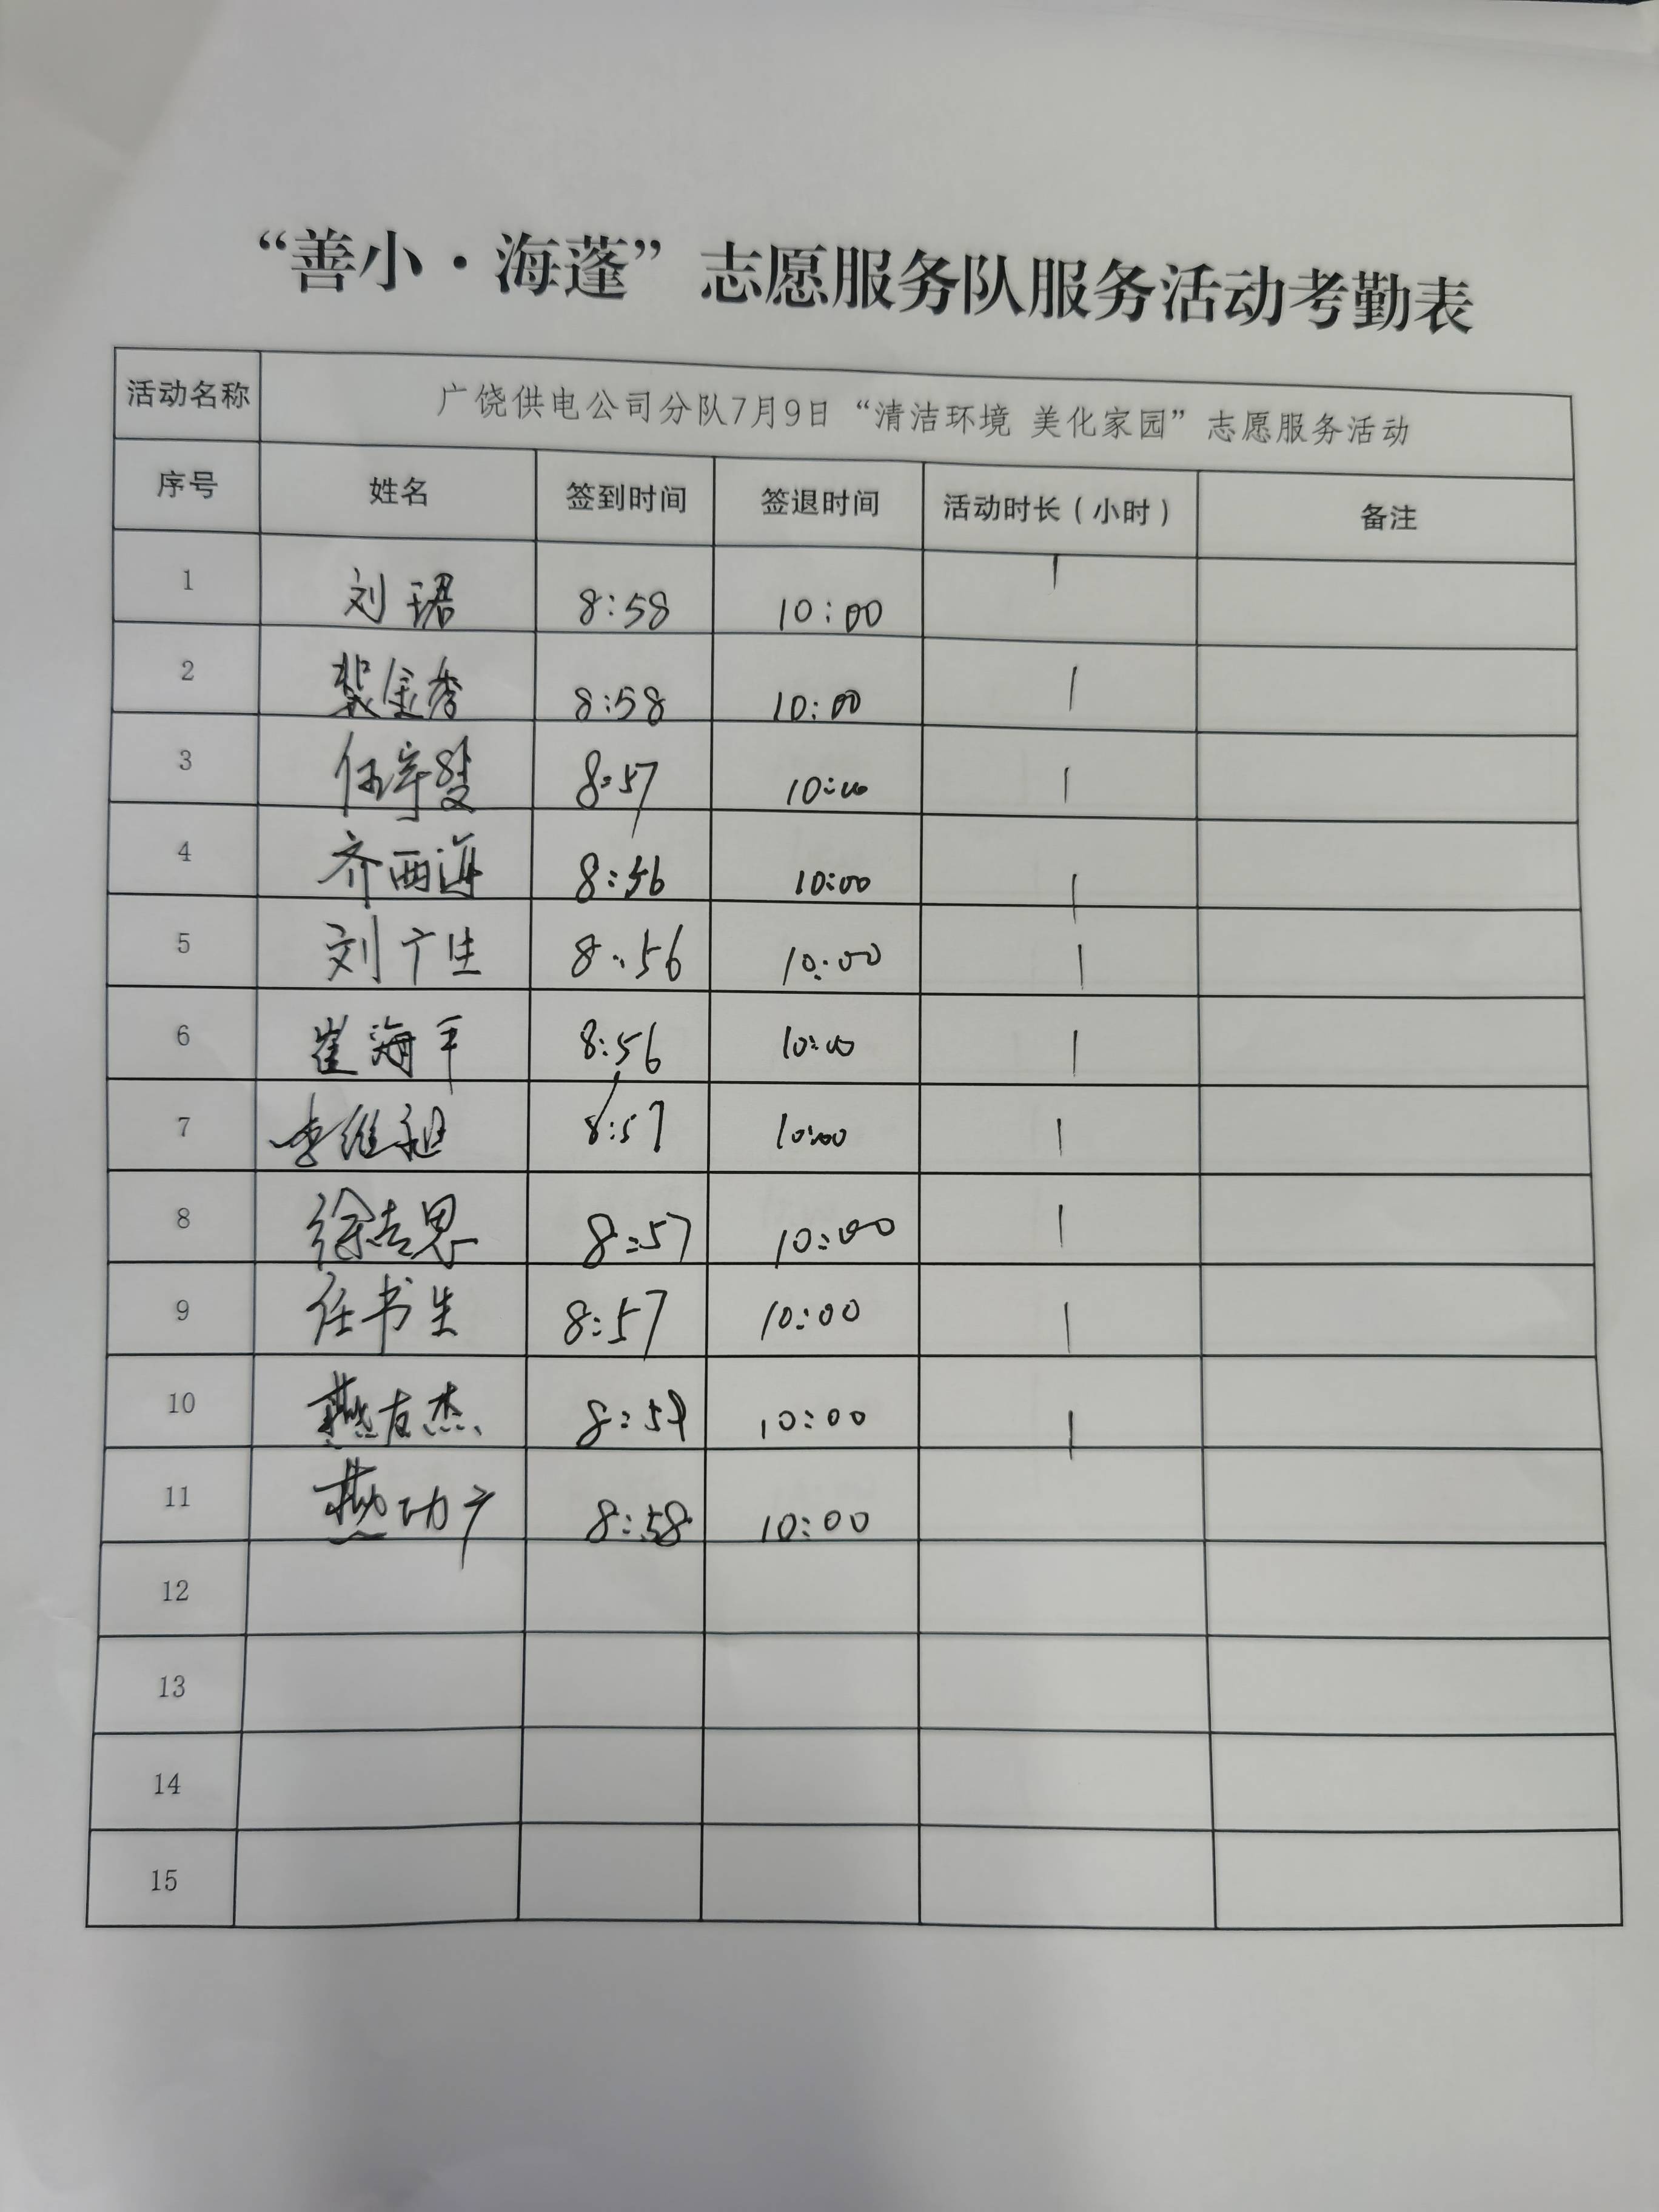 “善小·海蓬”志愿服务队服务活动考勤表
活动名称 广饶供电公司分队7月9日“清洁环境 美化家园”志愿服务活动
序号 姓名 签到时间 签退时间 活动时长(小时) 备注
1 刘珺 8:58 10:00 1
2 裴金秀 8:58 10:00 1
3 8:57 10:00 1
4 齐西海 8:56 10:00 1
5 刘广生 8:56 10:00 1
6 崔海平 8:56 10:00 1
7 李维 8:57 10:00 1
8 徐志恩 8:57 10:00 1
9 任书生 8:57 10:00 1
10 燕友杰 10:00 1
11 燕功广 8:58 10:00
12
13
14
15